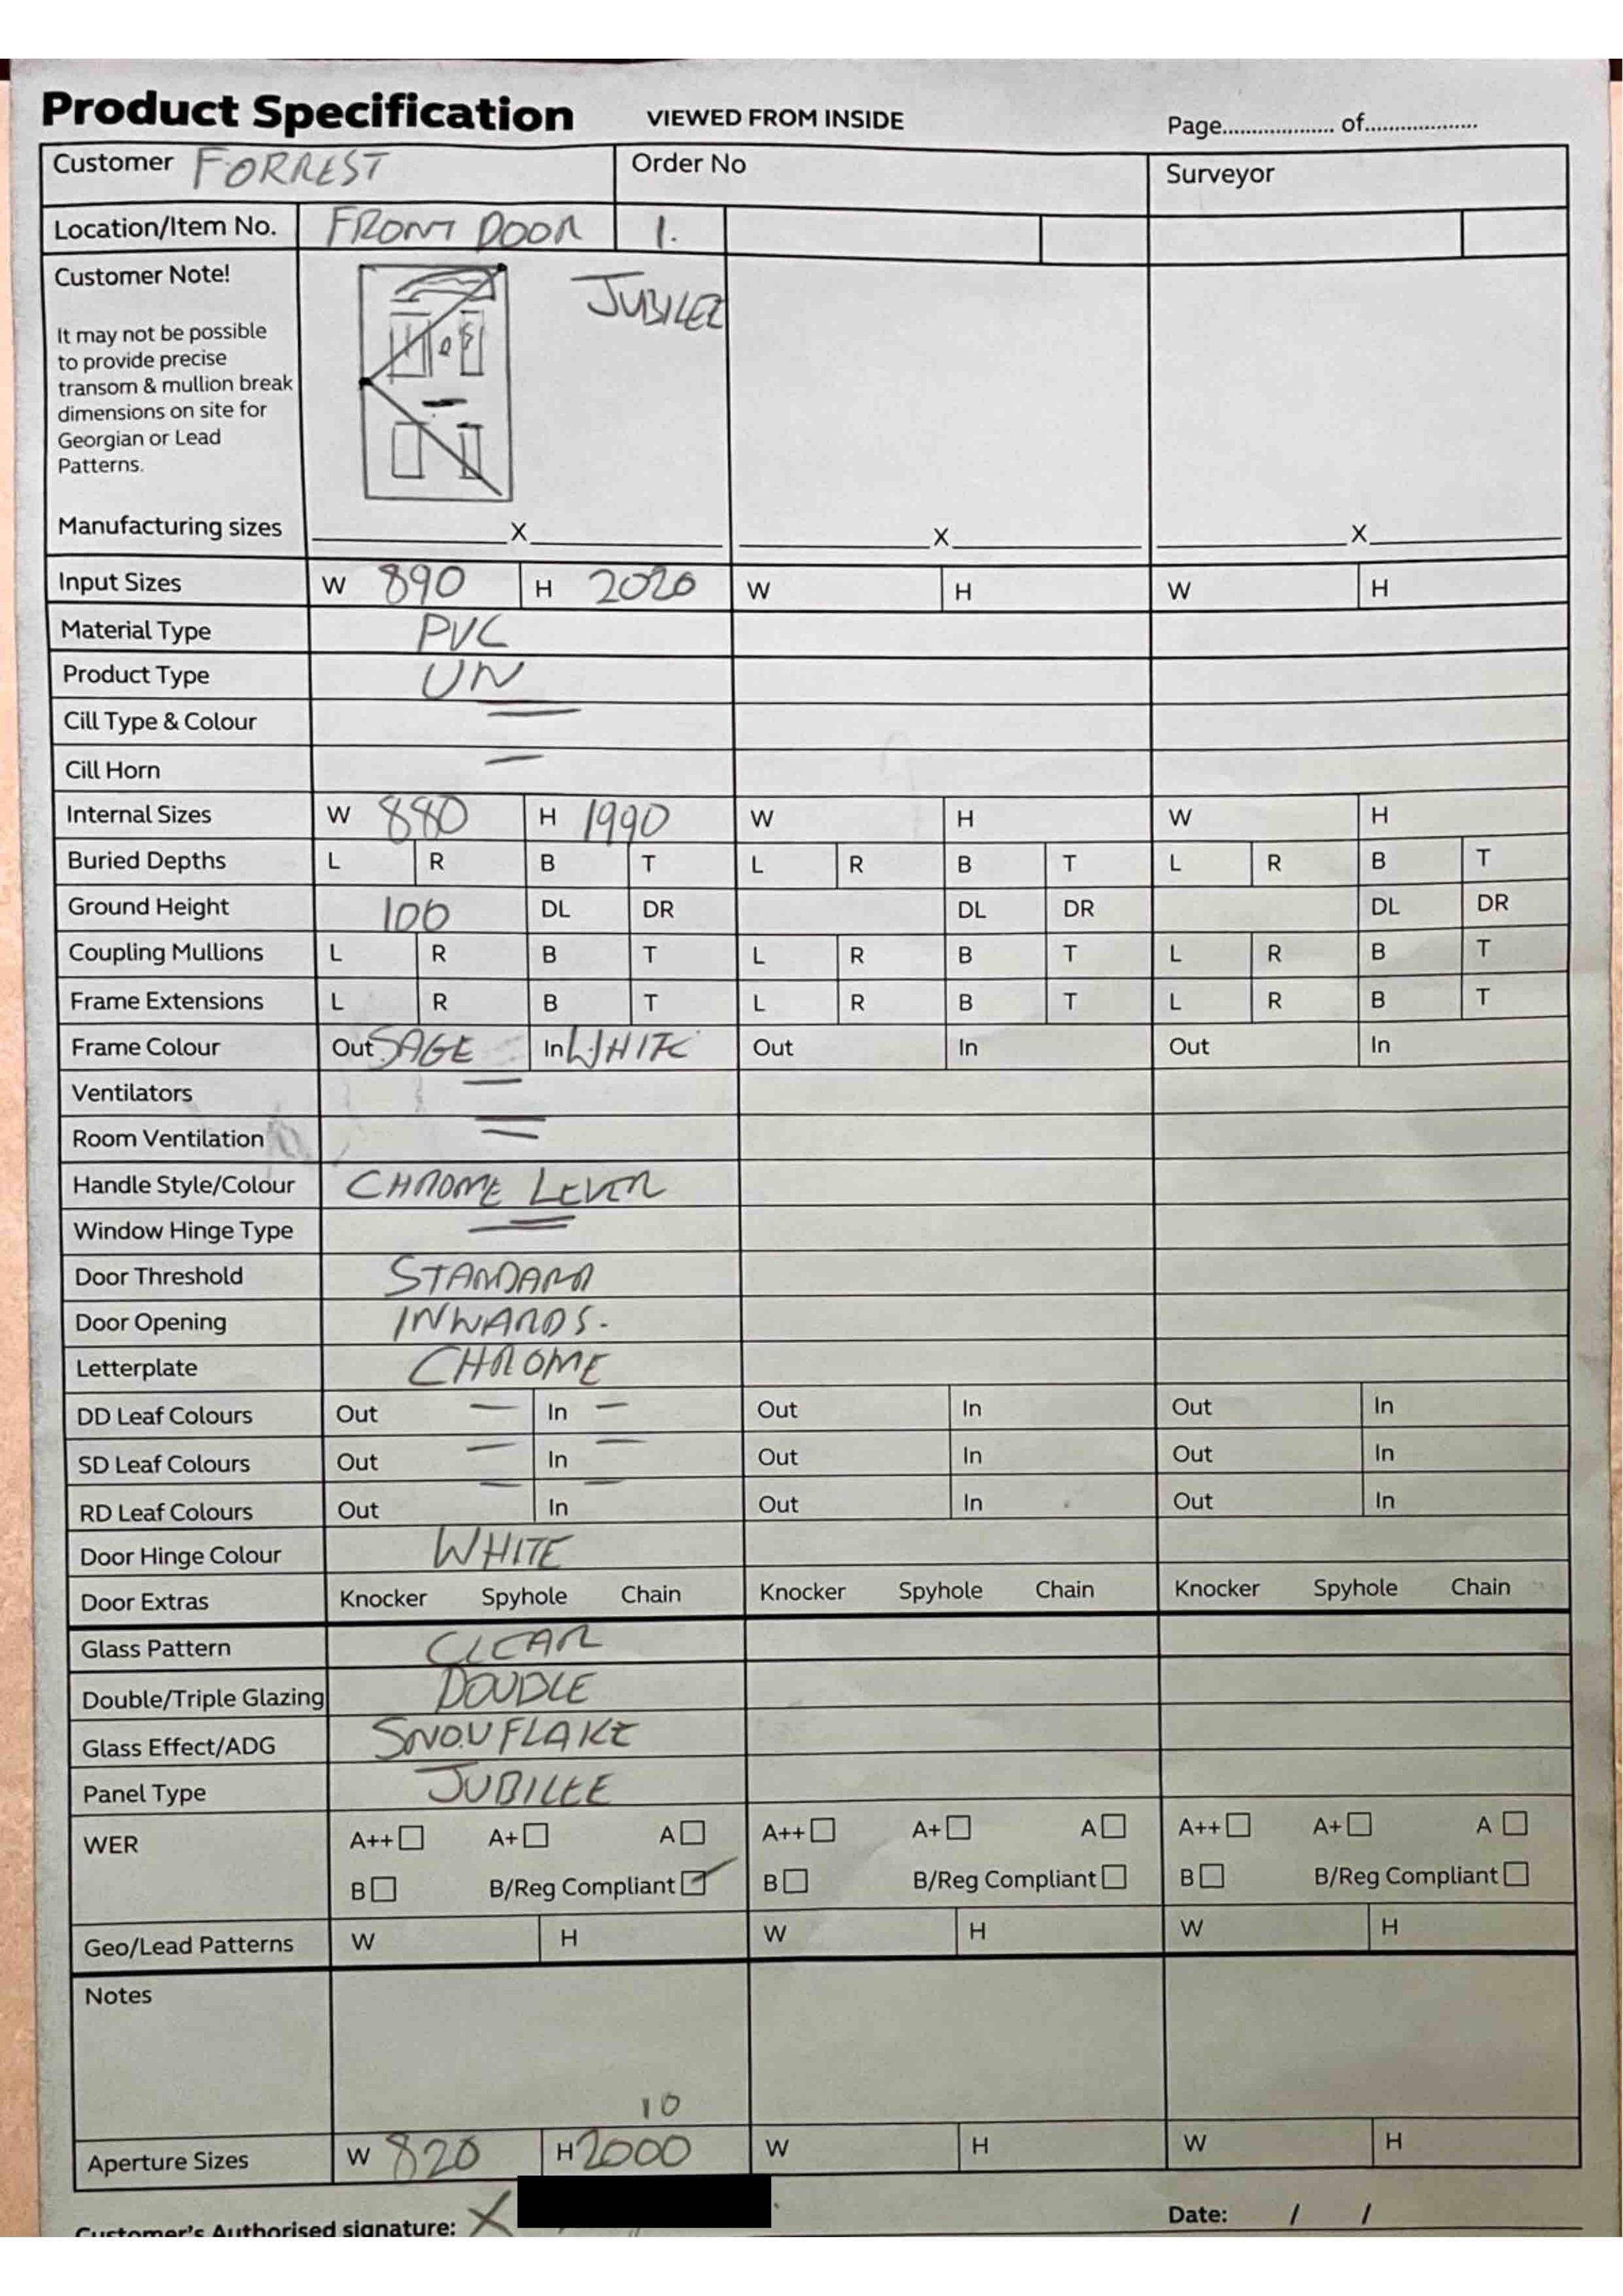 Product Specification VIEWED FROM INSIDE Page................... of...................
Customer FORREST Order No Surveyor
Location/Item No. FRONT DOOR 1.
Customer Note!
JUBILEE
It may not be possible
to provide precise
transom & mullion break
dimensions on site for
Georgian or Lead
Patterns.
Manufacturing sizes X X X
Input Sizes W 890 H 2020 W H W H
Material Type PVC
Product Type UN
Cill Type & Colour —
Cill Horn —
Internal Sizes W 880 H 1990 W H W H
Buried Depths L R B T L R B T L R B T
Ground Height 100 DL DR DL DR DL DR
Coupling Mullions L R B T L R B T L R B T
Frame Extensions L R B T L R B T L R B T
Frame Colour Out SAGE In WHITE Out In Out In
Ventilators —
Room Ventilation —
Handle Style/Colour CHROME LEVER
Window Hinge Type —
Door Threshold STANDARD
Door Opening INWARDS.
Letterplate CHROME
DD Leaf Colours Out — In — Out In Out In
SD Leaf Colours Out — In — Out In Out In
RD Leaf Colours Out — In — Out In Out In
Door Hinge Colour WHITE
Door Extras Knocker Spyhole Chain Knocker Spyhole Chain Knocker Spyhole Chain
Glass Pattern CLEAR
Double/Triple Glazing DOUBLE
Glass Effect/ADG SNOWFLAKE
Panel Type JUBILEE
WER A++ A+ A A++ A+ A A++ A+ A
B B/Reg Compliant B B/Reg Compliant B B/Reg Compliant
Geo/Lead Patterns W H W H W H
Notes
10
Aperture Sizes W 820 H 2000 W H W H
Customer's Authorised signature: X Date: / /